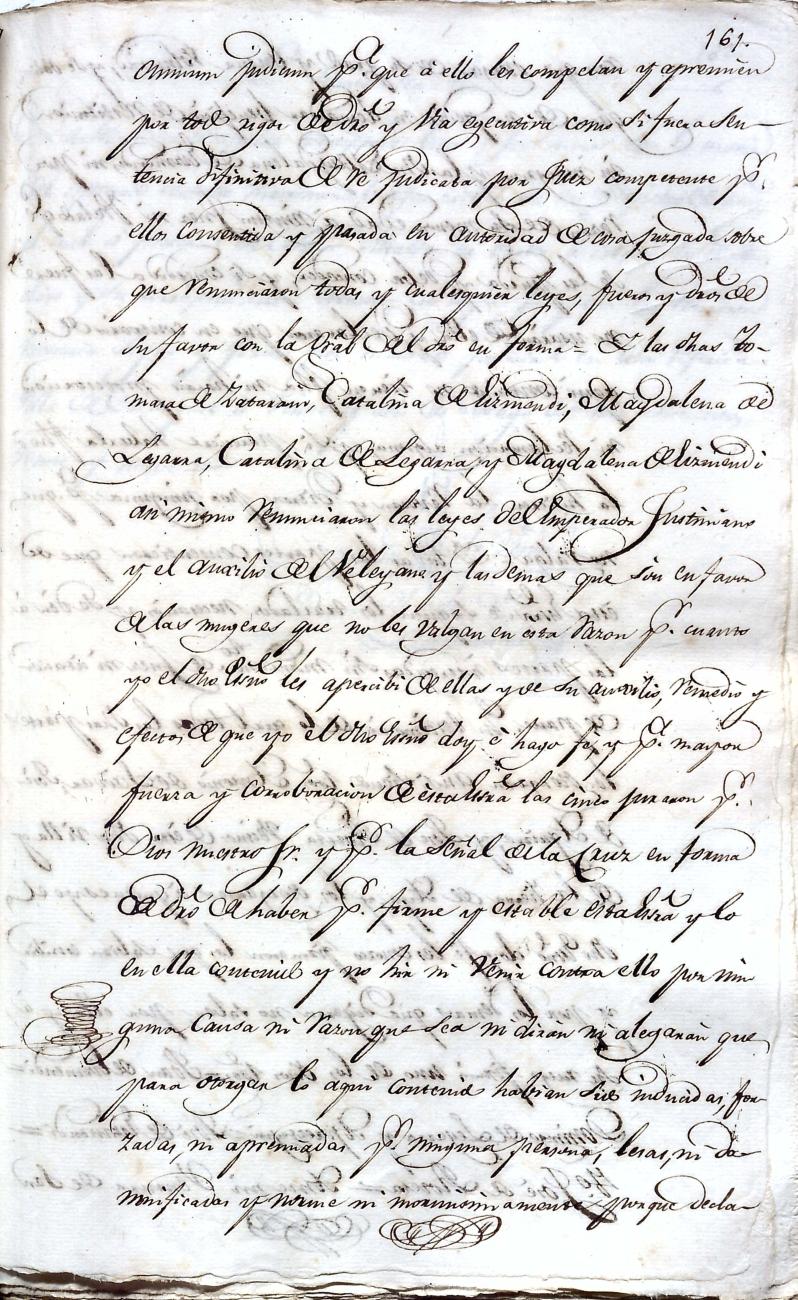 161.
omnium judicum p.ª que à ello les compelan y apremien
por todo rigor de dro y via egecutiva como si fuera sen-
tencia difinitiva de re judicata por Juez competente p.r
ellos consentida y pasada en autoridad de cosa juzgada sobre
que renunciaron todas y cualesquier leyes, fueros y dros de
su favor con la gral del dro en forma = Y las dhas To-
masa de Zatarain, Catalina de Lizmendi, Magdalena de
Legarra, Catalina de Legarra, y Magdalena de Lizmendi
asi mismo renunciaron las leyes del Emperador Justiniano
y el auxilio del Veleyano y las demas que son en favor
de las mugeres que no les valgan en esta razon p.r cuanto
yo el dho Esno les apercibi de ellas y de su auxilio, remedio y
efectos de que yo el dho Esno doy è hago fé, y p.ª mayor
fuerza y corroboracion de esta Essra las cinco juraron p.r
Dios nuestro Sr. y p.r la señal de la Cruz en forma
de dro de haber p.r firme y estable esta Essra y lo
en ella contenido y no hir ni venir contra ello por nin
guna causa ni razon que sea ni diran ni alegarán que
para otorgar lo aqui contenido habian sido inducidas, for-
zadas, ni apremiadas p.r ninguna persona, lesas, ni da-
mnificadas y norme ni mormisimamente porque decla-